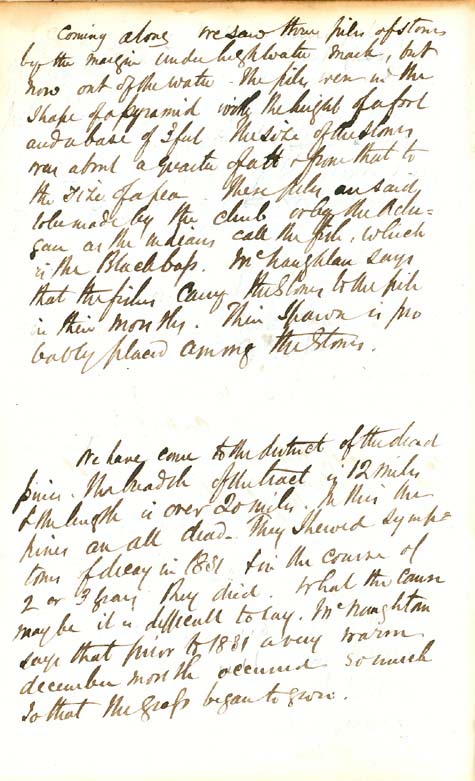 Coming along we saw three piles of stones
by the margin under high water mark, but
now out of the water. The piles were in the
shape of a pyramid with the height of a foot
and a base of 3 feet. The size of the stones
was about a quarter of a lb & from that to
the size of a pea. These piles are said
to be made by the chub or by the Achi=
gan as the indians call the fish, which
is the Black bass. McNaughtan says
that the fishes carry the stones to the pile
in their mouths. Their spawn is pro
bably placed among the stones.
We have come to the district of the dead
pines. The breadth of the tract is 12 miles
& the length is over 20 miles. In this the
pines are all dead. They shewed symp=
toms of decay in 1831 & in the course of
2 or 3 years they died. What the cause
may be it is difficult to say. McNaughtan
says that prior to 1831 a very warm
december month occurred so much
so that the grass began to grow.